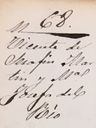 N 68.
Vicente de
Marin Ma
rin y Ma
Josefa del
Rio